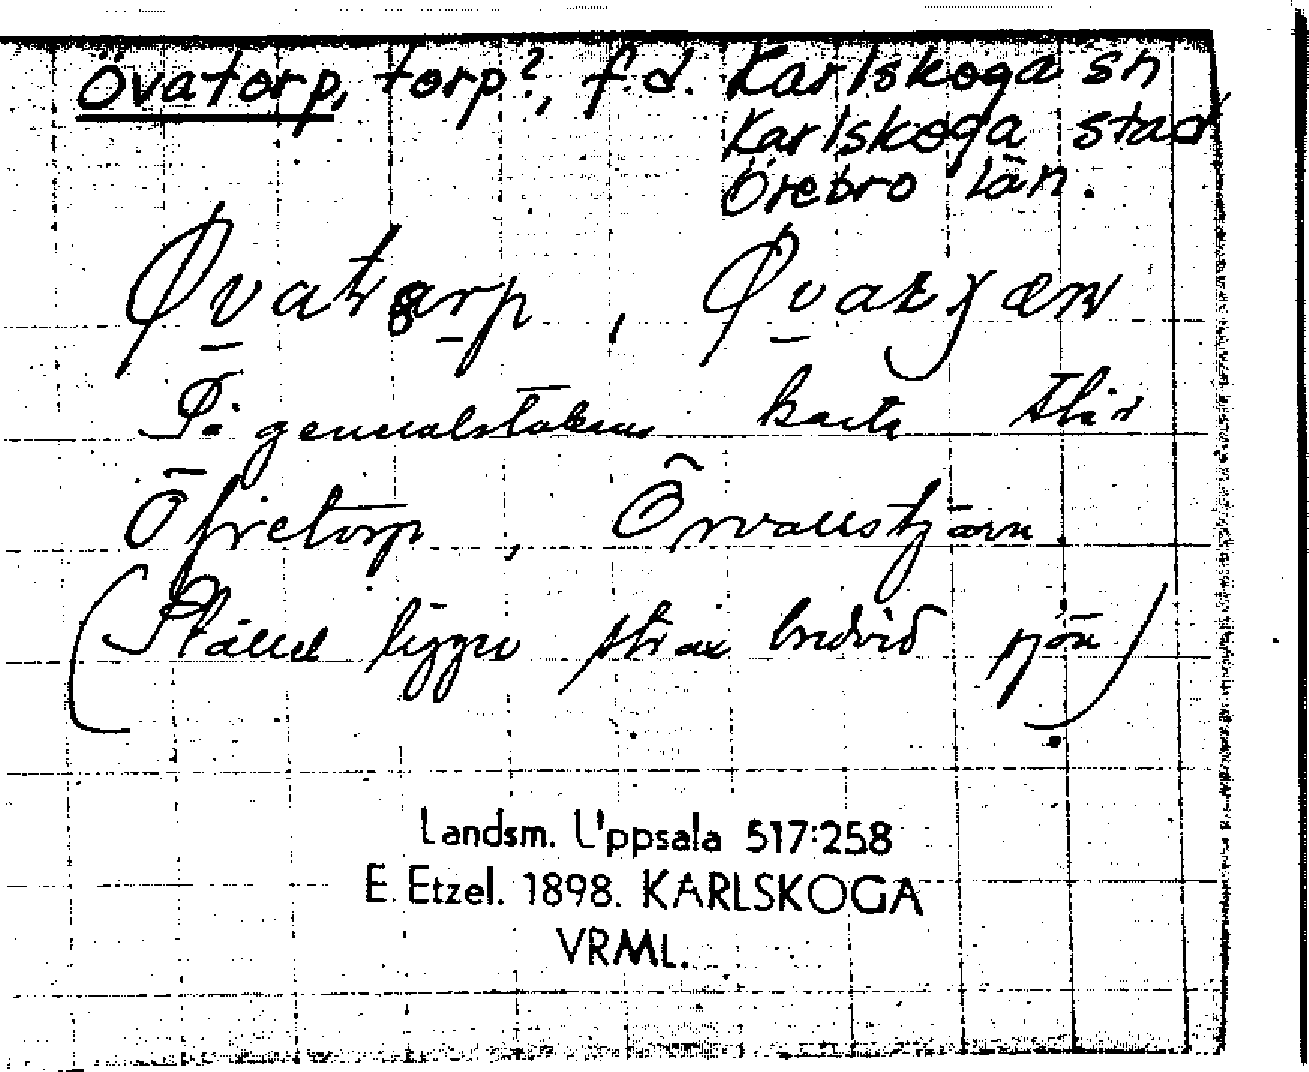 Övatorp, torp?, f.d. Karlskoga sn
Karlskoga stad
Örebro län.
Øvatorp, Øvatjæn
På generalstabens karta står
Öfvretorp,
(Stället ligger strax bredvid sjön)
Landsm. Uppsala 517:258
E. Etzel. 1898. KARLSKOGA
VRML.